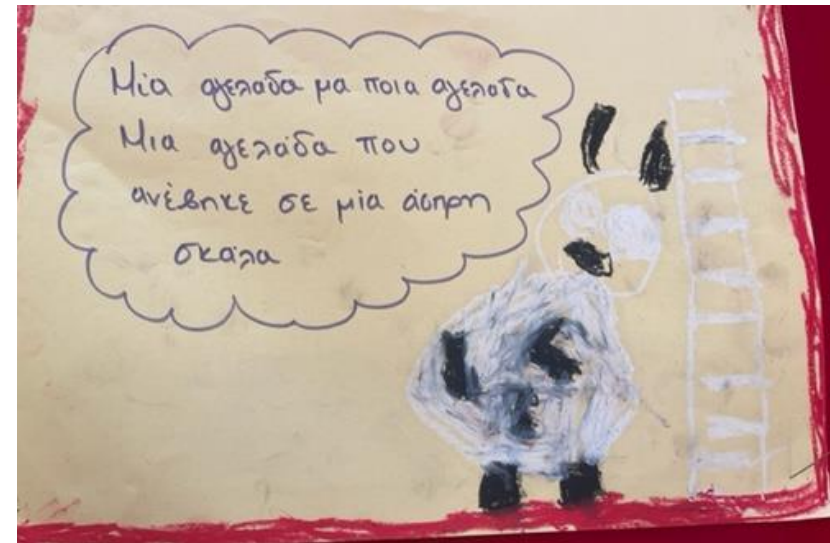 Μία αγελαδα μα ποια αγελαδα
Μια αγελάδα που
ανέβηκε σε μία άσπρη
σκάλα